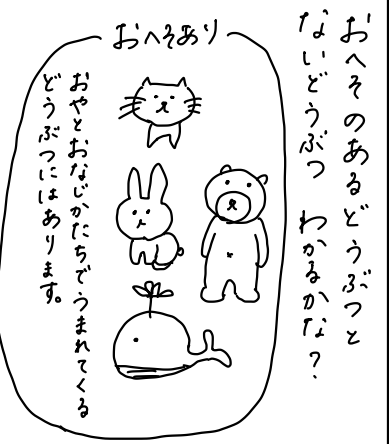 おへそのあるどうぶつと
ないどうぶつ わかるかな？
おへそあり
おやとおなじかたちでうまれてくる
どうぶつにはあります。